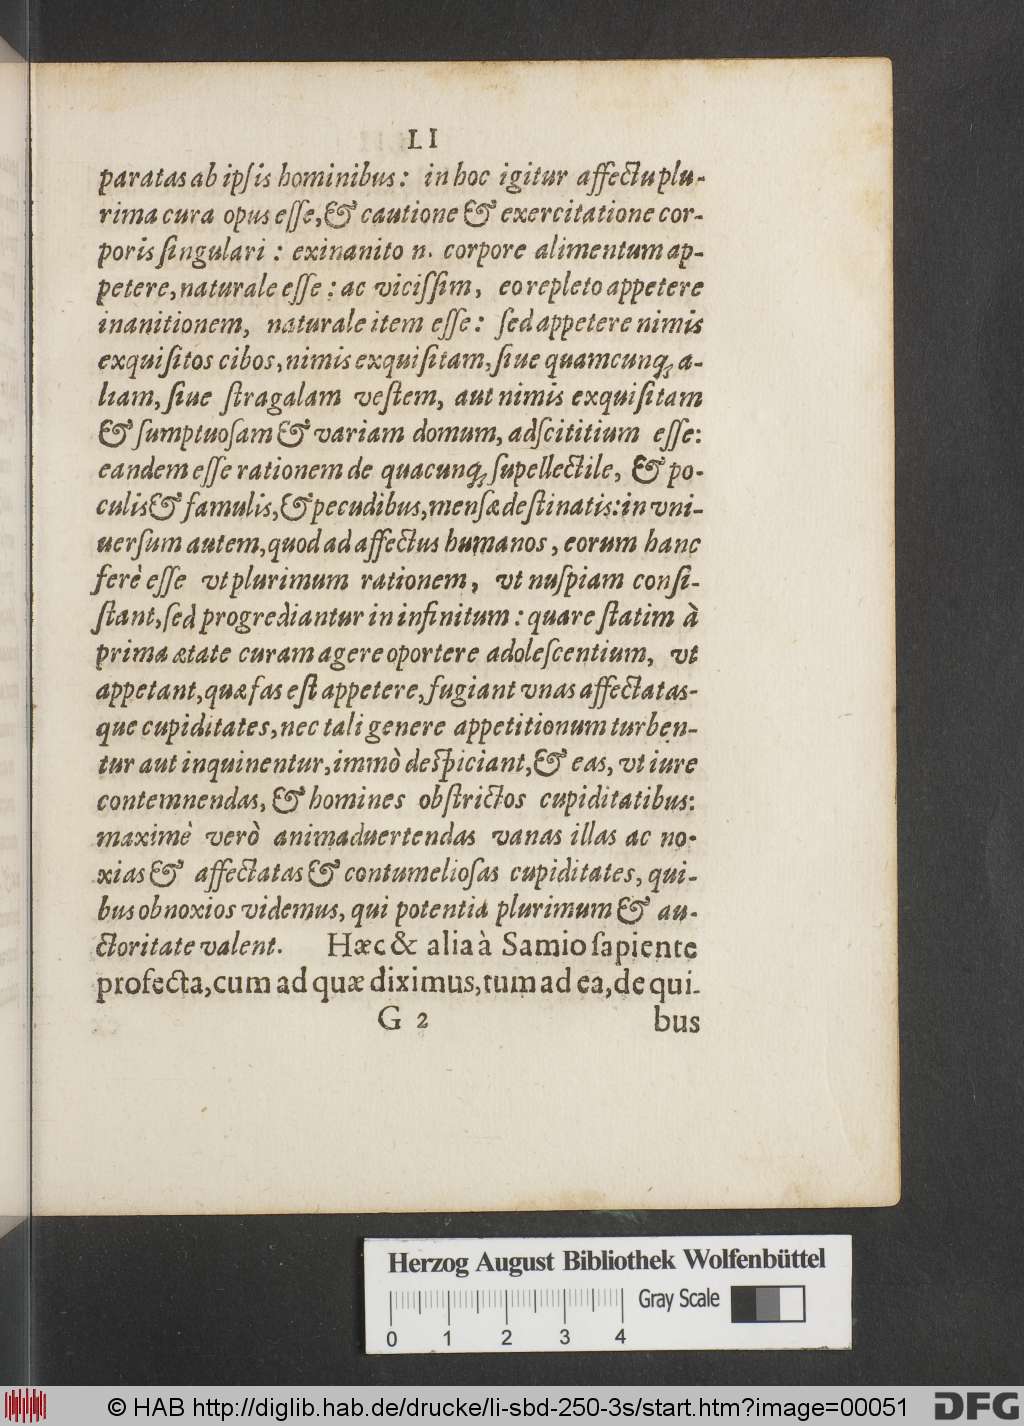 LI
paratas ab ipſis hominibus: in hoc igitur affectu plu-
rima cura opus eſſe, & cautione & exercitatione cor-
poris ſingulari : exinanito n. corpore alimentum ap-
petere, naturale eſſe : ac viciſſim, eo repleto appetere
inanitionem, naturale item eſſe: ſed appetere nimis
exquiſitos cibos, nimis exquiſitam, ſiue quamcunq; a-
liam, ſiue ſtragalam veſtem, aut nimis exquiſitam
& ſumptuoſam & variam domum, adſcititium eſſe:
eandem eſſe rationem de quacunq; ſupellectile, & po-
culis & famulis, & pecudibus, menſæ deſtinatis: in vni-
uerſum autem, quod ad affectus humanos, eorum hanc
ferè eſſe vt plurimum rationem, vt nuſpiam conſi-
ſtant, ſed progrediantur in infinitum : quare ſtatim à
prima ætate curam agere oportere adoleſcentium, vt
appetant, quæ fas eſt appetere, fugiant vnas affectatas-
que cupiditates, nec tali genere appetitionum turben-
tur aut inquinentur, immò deſpiciant, & eas, vt iure
contemnendas, & homines obſtrictos cupiditatibus:
maximè verò animaduertendas vanas illas ac no-
xias & affectatas & contumelioſas cupiditates, qui-
bus obnoxios videmus, qui potentia plurimum & au-
ctoritate valent. Hæc & alia à Samio ſapiente
profecta, cum ad quæ diximus, tum ad ea, de qui-
G 2 bus
Herzog August Bibliothek Wolfenbüttel
Gray Scale
0 1 2 3 4
© HAB http://diglib.hab.de/drucke/li-sbd-250-3s/start.htm?image=00051
DFG